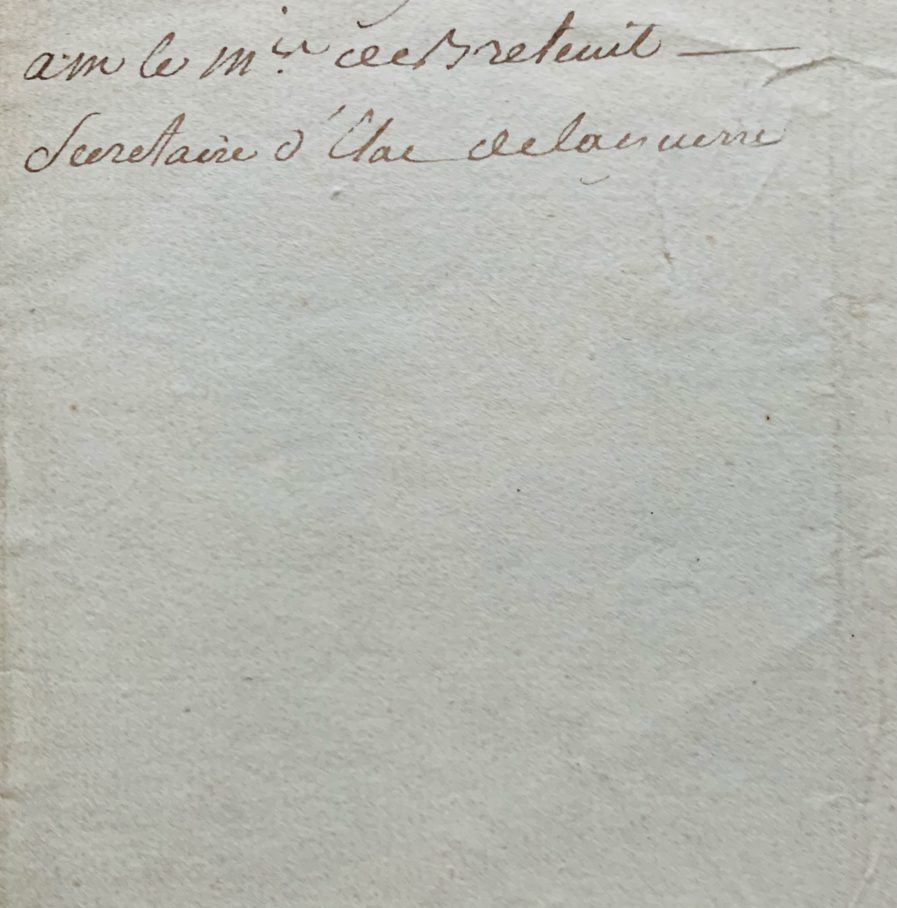 a m le m.is de Breteuil
Secretaire d'Etat de la guerre